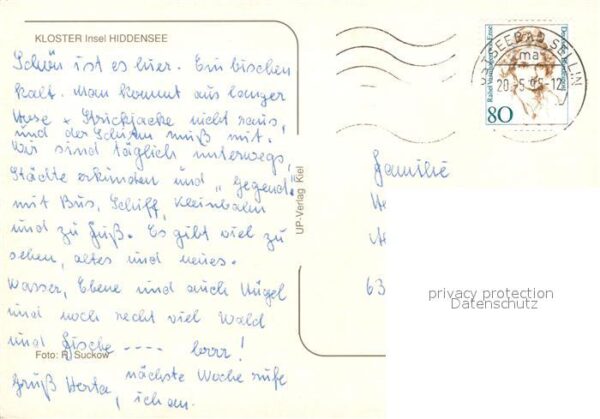 KLOSTER Insel HIDDENSEE
Schön ist es hier. Ein bischen
kalt. Man kommt aus langer
Hose + Strickjacke nicht raus,
und der Schirm muß mit.
Wir sind täglich unterwegs,
Städte erkunden und „Gegend"
mit Bus, Schiff, Kleinbahn
und zu Fuß. Es gibt viel zu
sehen, altes und neues.
Wasser, Ebene und auch Hügel
und noch recht viel Wald
und Fische ---- brrr!
Foto: R. Suckow
nächste Woche rufe
Gruß Herta, ich an.
UP-Verlag Kiel
OSTSEEBAD SELLIN
ma
20.-5. 95-12
Rahel Varnhagen von Ense
80
Familie
He
He
63
privacy protection
Datenschutz